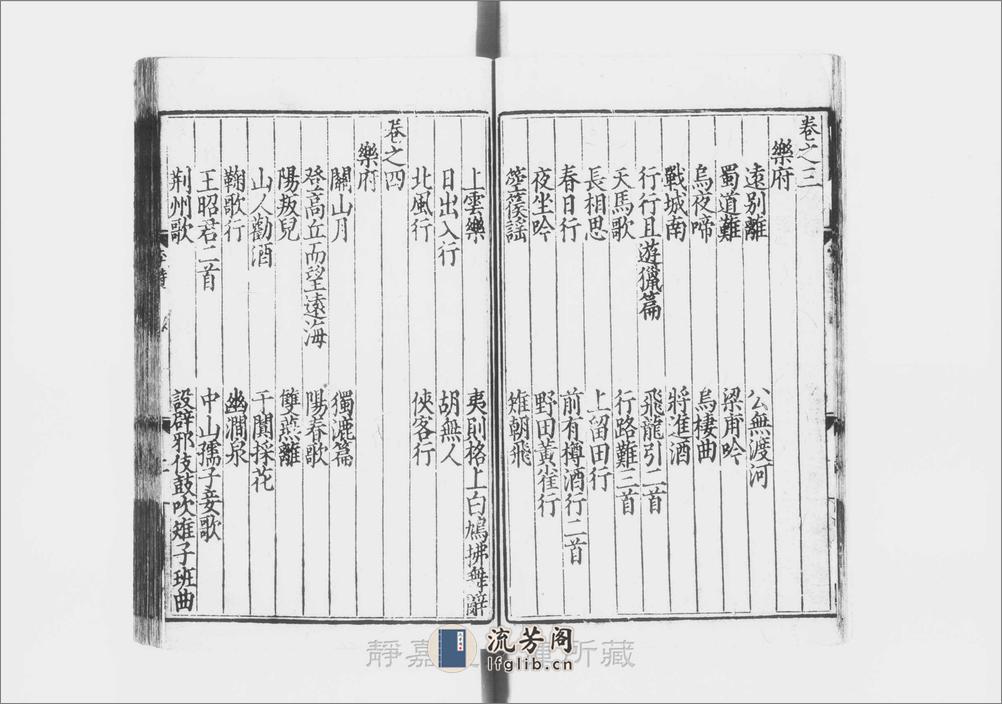 卷之三
樂府
遠别離 公無渡河
蜀道難 梁甫吟
烏夜啼 烏棲曲
戰城南 將進酒
行行且遊獵篇 飛龍引二首
天馬歌 行路難三首
長相思 上留田行
春日行 前有樽酒行二首
夜坐吟 野田黃雀行
箜篌謠 雉朝飛
上雲樂 夷則格上白鳩拂舞辭
日出入行 胡無人
北風行 俠客行
卷之四
樂府
關山月 獨漉篇
登高丘而望遠海 陽春歌
陽叛兒 雙燕離
山人勸酒 于闐採花
鞠歌行 幽澗泉
王昭君二首 中山孺子妾歌
荆州歌 設辟邪伎鼓吹雉子班曲
靜嘉 所藏
流芳阁
lfglib.cn